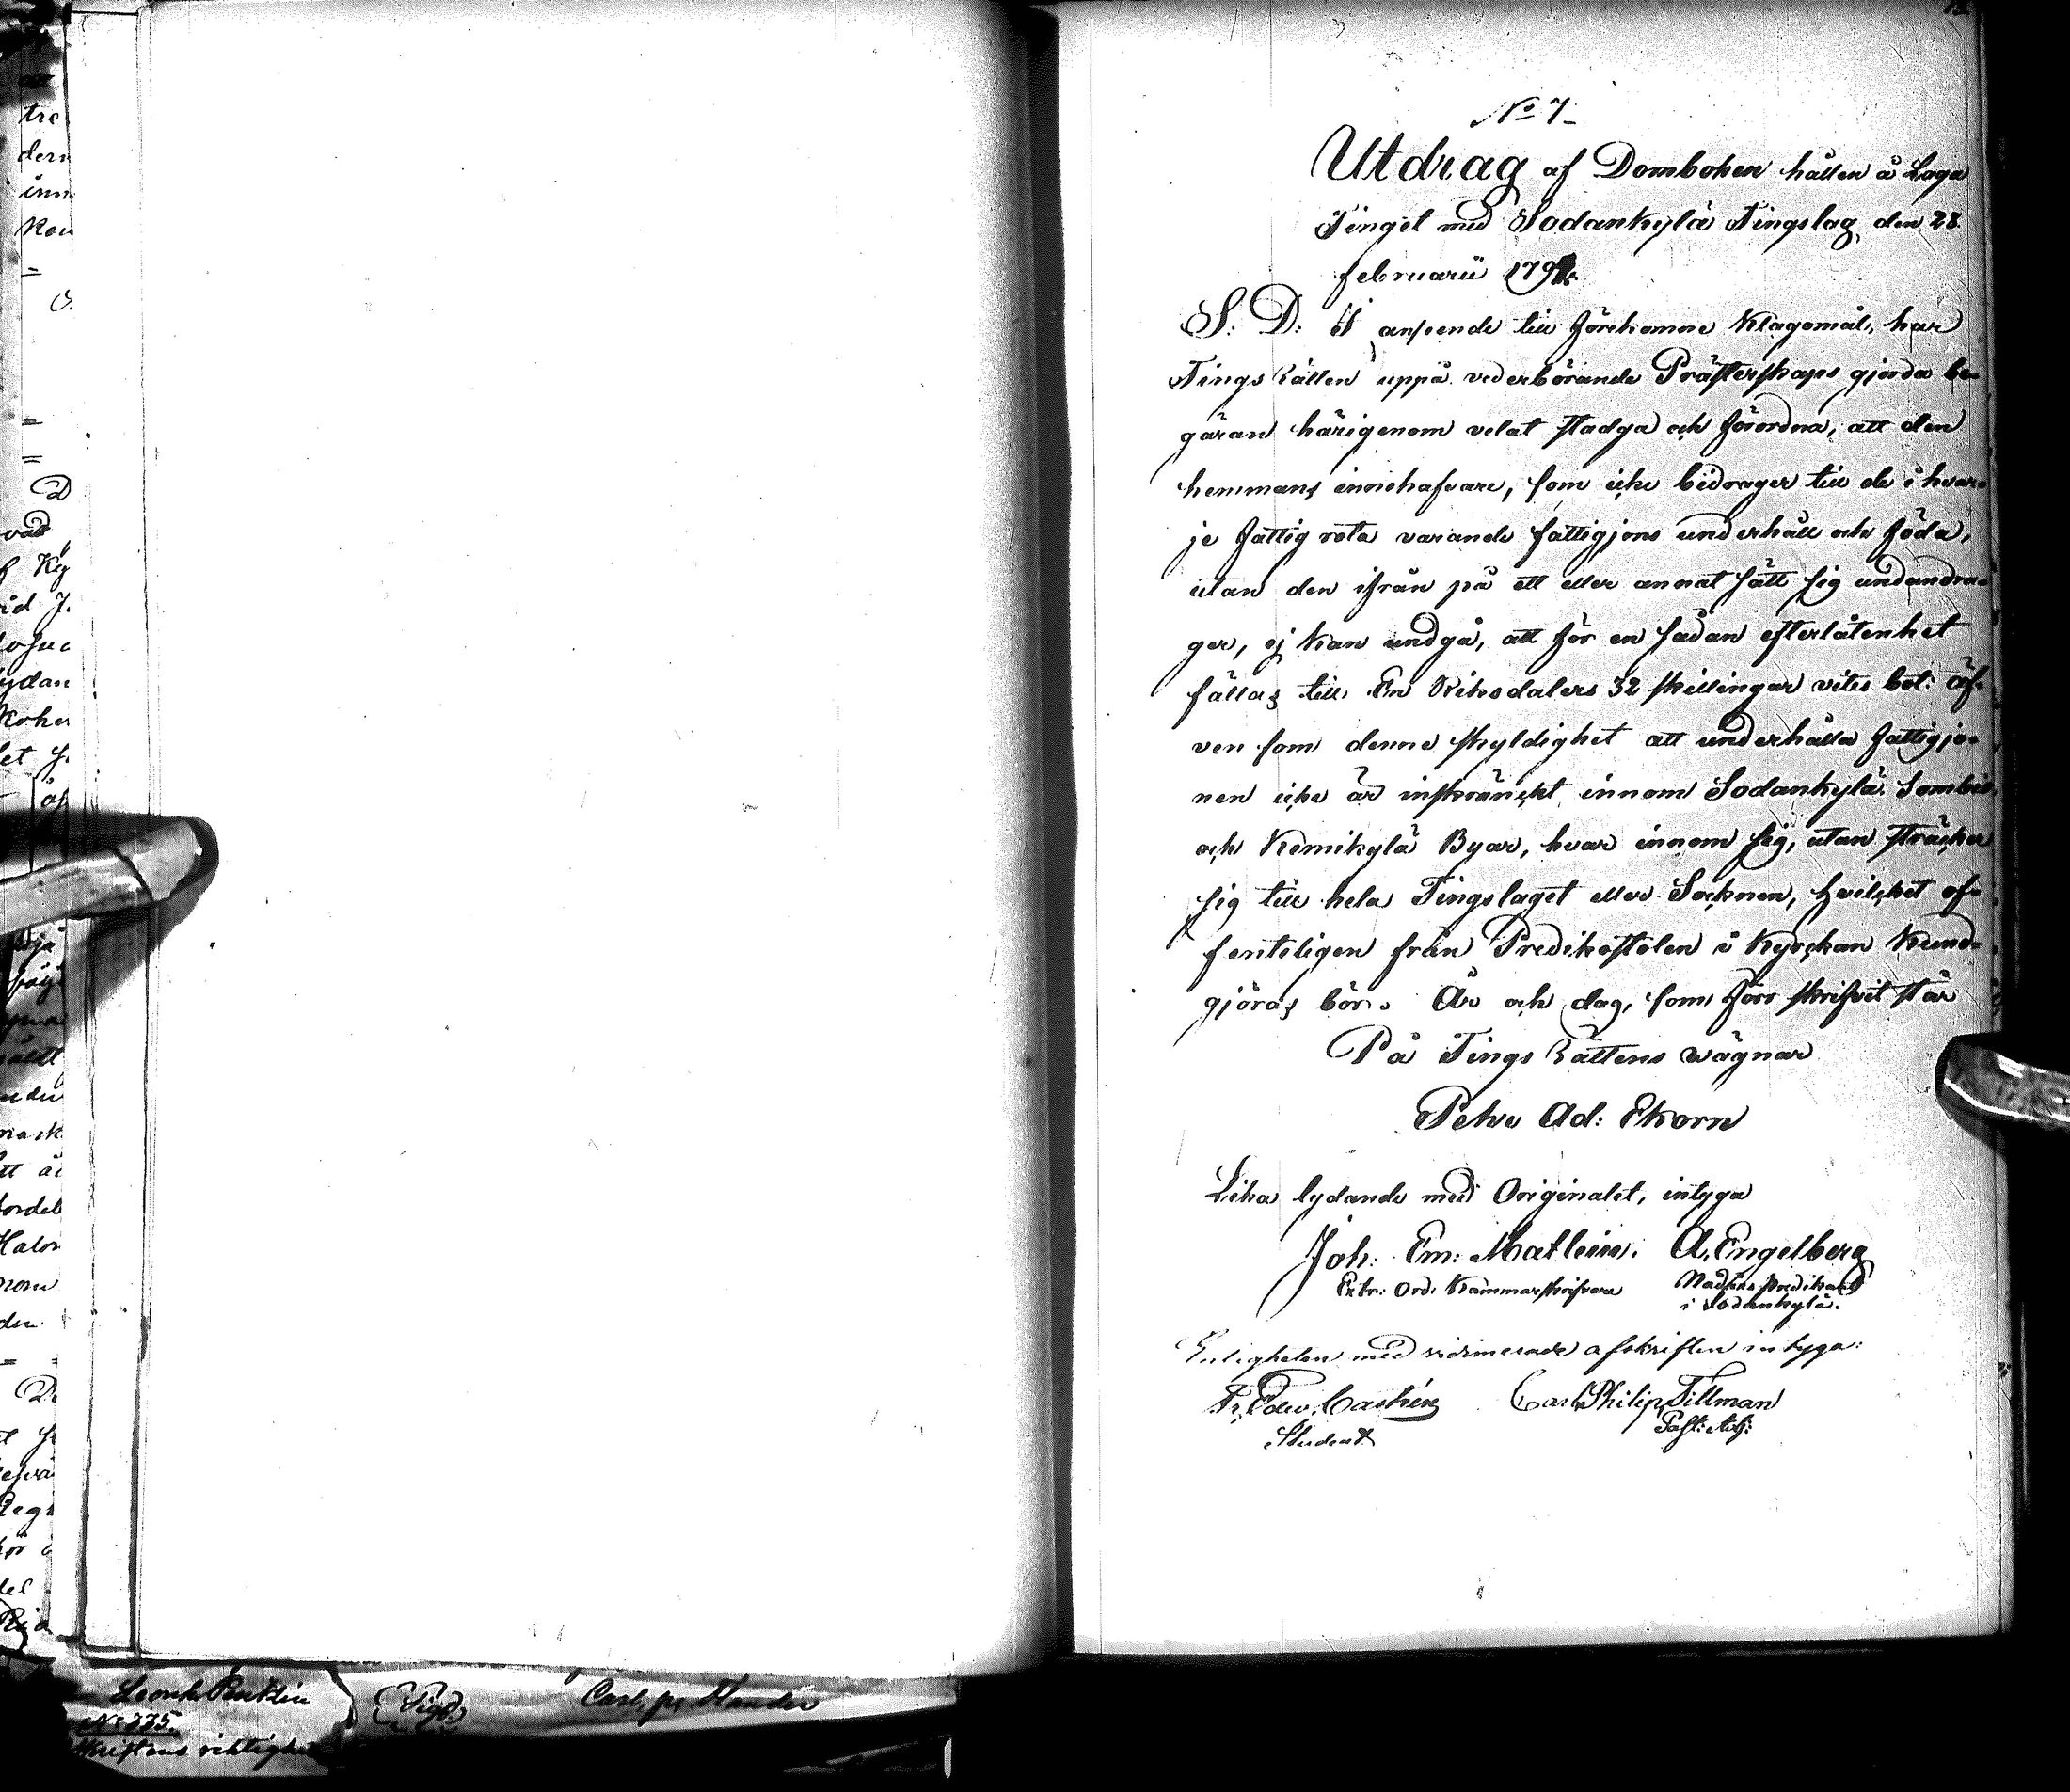 No 7
Utdrag af Domboken hållen å Laga
Tinget med Sodankylä Tingslag, den 28
februarii 179
S: D: I anseende till förekomne Klagomål, har
Tings Rätten uppå vederbörande Prästerskaps gjorda be-
gäran härigenom velat stadga och förordna, att den
hemmans innehafvare, som icke bidrager till de i hvar-
je fattig rota varande fattigjons underhåll och föda,
utan den ifrån på ett eller annat sätt sig undandra-
ger, ej kan undgå, att för en sådan efterlåtenhet
fällas till En Riksdalers 32 skillingar vites bot: äf-
ven som denne skyldighet att underhålla fattigjo-
nen icke är inskränckt innom Sodankylä, Sombio,
och Kemikylä Byar, hvar innom sig, utan sträcker
sig till hela Tingslaget eller Socknen, hvilcket of-
fenteligen från Predikostolen i Kyrckan Kund-
gjöras bör. År och dag, som förr skrifvit står
På Tings Rättens wägnar
Petre Ad: Ekorn
Lika lydande med Originalet, intyga
Joh: Em: Mathein. A. Engelberg
Extr: Ord: Kammarskrifvare Nådårs predikant
i Sodankylä.
Enligheten med vidimerade afskriften intyga:
Fr. Edw. Castrén Carl Philip Tillman
Student Past: Adj:
tre
inn
=
=
=
D
Kg
ydan
et
Carl
No 225.
riktighet